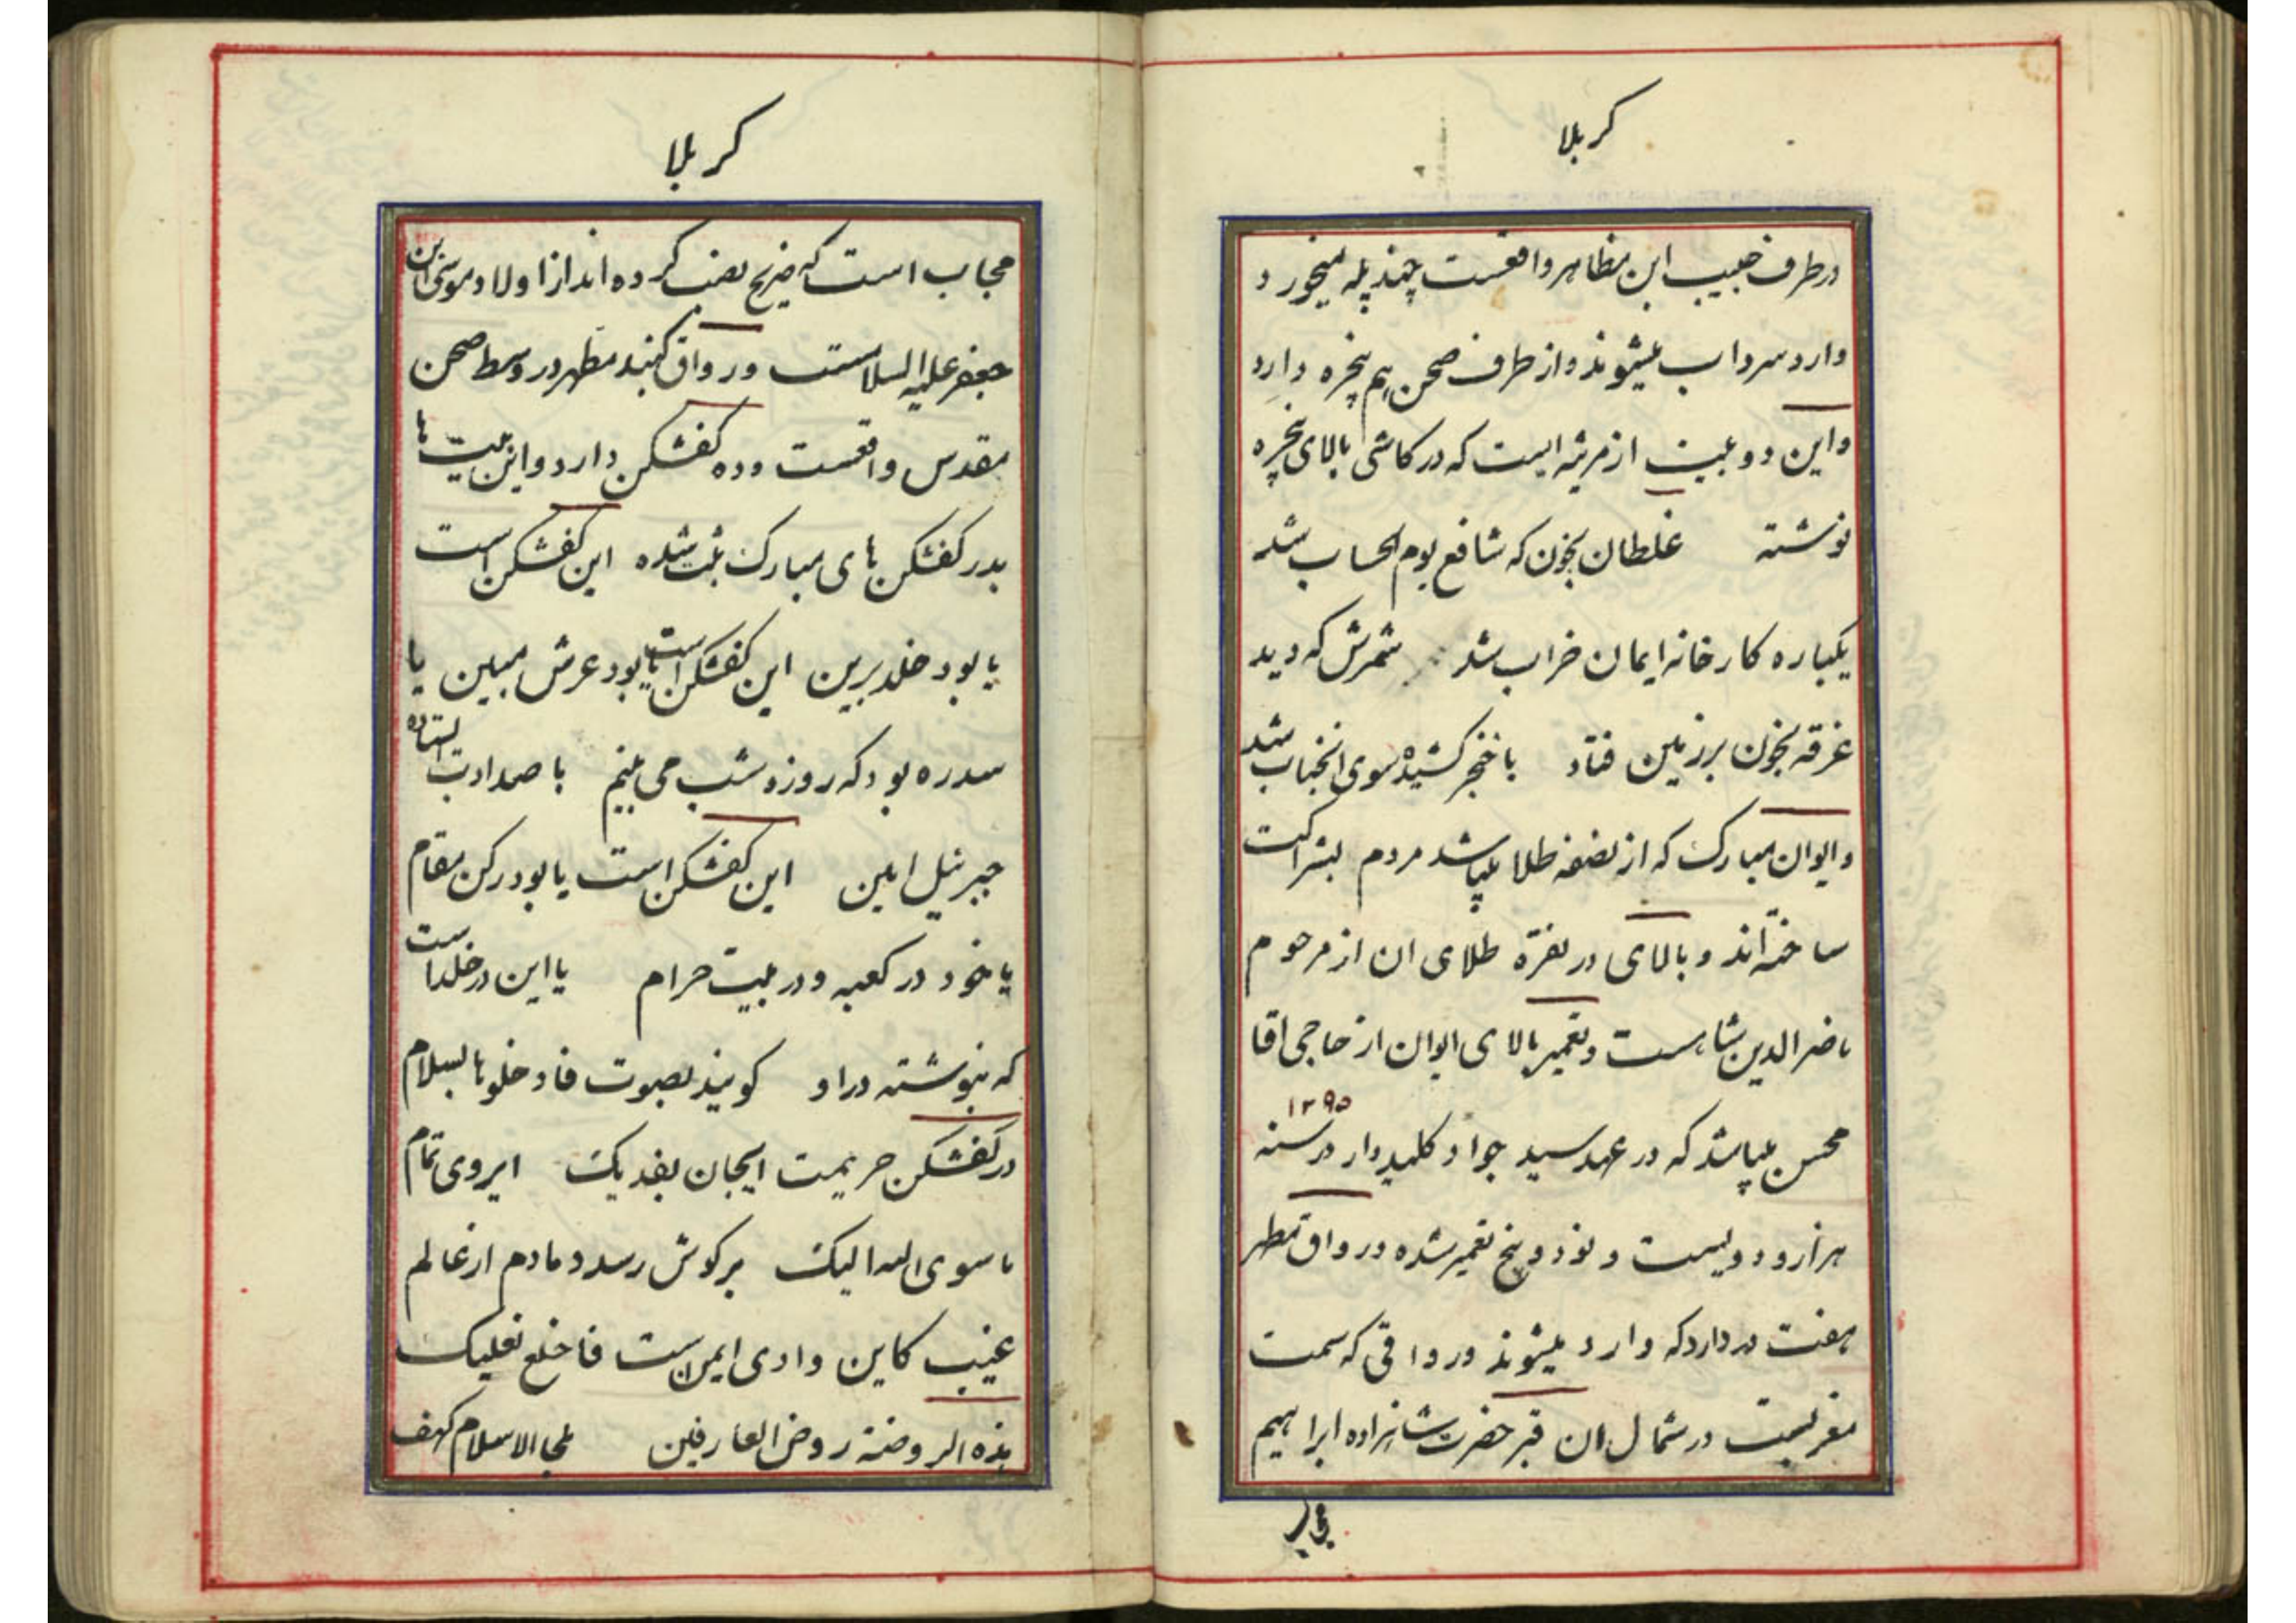 کربلا
درطرف حبیب ابن مظاهر واقعست چند پله میخورد
وارد سرداب میشوند و از طرف صحن هم پنجره دارد
و این دو بیت از مرثیه ایست که در کاشی بالای پنجره
نوشته غلطان بخون که شافع یوم الحساب شد
یکباره کارخانه ایمان خراب شد شمرش که دید
غرقه بخون بر زمین فتاد با خنجر کشیده سوی انجناب شد
و ایوان مبارک که از نصفه طلا میباشد مردم بشراکت
ساخته اند و بالای در نقره طلای ان از مرحوم
ناصرالدین شاهست و تعمیر بالای ایوان از حاجی اقا
محسن میباشد که در عهد سید جواد کلیددار در سنه ۱۲۹۵
هزار و دویست و نود و پنج تعمیر شده در رواق مطهر
هفت در دارد که وارد میشوند در رواقی که سمت
مغربست در شمال ان قبر حضرت شاهزاده ابراهیم
مجاب
کربلا
مجاب است که ضریح نصب کرده اند از اولاد موسی ابن
جعفر علیه السلامست و رواق گنبد مطهر در وسط صحن
مقدس واقعست و ده کفشکن دارد و این بیت ها
بدر کفشکن های مبارک ثبت شده این کفشکن است
یا بود خلد برین این کفشکن است یا بود عرش مبین یا
سدره بود که روز و شب می بینم با صد ادب ایستاده
جبرئیل امین این کفشکن است یا بود رکن مقام
یا خود در کعبه و در بیت حرام یا این در خلد است
که بنوشته در او کویند بصوت فادخلوها بسلام
در کفشکن حریمت ایجان بفدیک ایروی تمام
ما سوی الله الیک بر کوش رسد دمادم از عالم
غیب کاین وادی ایمن است فاخلع نعلیک
هذه الروضة روض العارفین ملجا الاسلام کهف